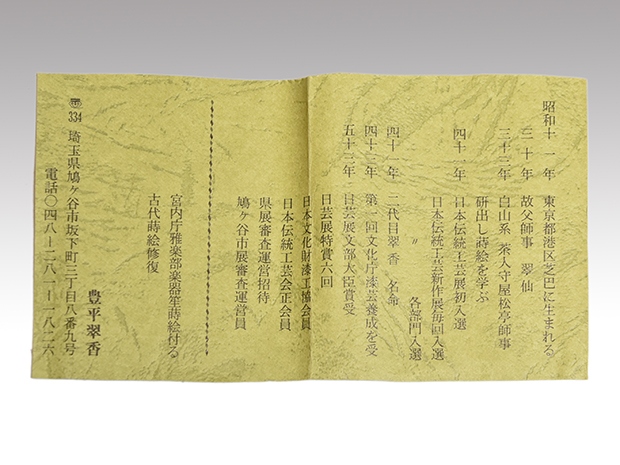 昭和十一年 東京都港区芝巴に生まれる
三十年 故父師事 翠仙
三十三年 白山系 茶人守屋松亭師事
研出し蒔絵を学ぶ
四十一年 日本伝統工芸展初入選
日本伝統工芸新作展毎回入選
〃 各部門入選
四十一年 二代目翠香 名命
四十三年 第一回文化庁漆芸養成を受
五十三年 日芸展文部大臣賞受
日芸展特賞六回
日本文化財漆工協会員
日本伝統工芸会正会員
県展審査運営招待
鳩ヶ谷市展審査運営員
宮内庁雅楽部楽器笙蒔絵付る
古代蒔絵修復
豊平翠香
〒334 埼玉県鳩ヶ谷市坂下町三丁目八番九号
電話〇四八ー二八一ー一八二六